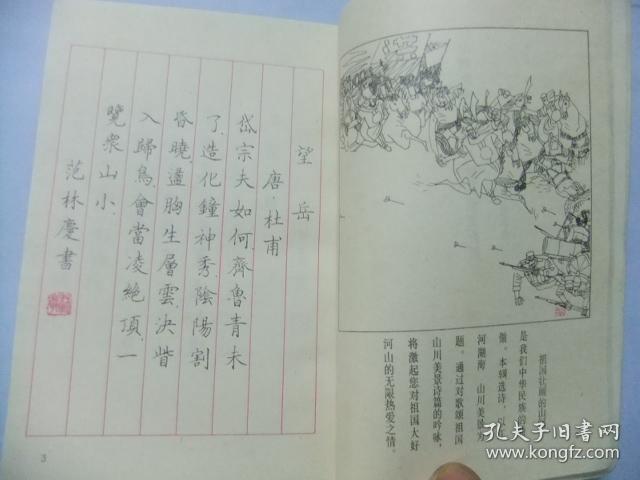 祖国壮丽的山
是我们中华民族的
傲。本辑选诗，以
河湖海、山川美景为
题。通过对歌颂祖国
山川美景诗篇的吟咏，
将激起您对祖国大好
河山的无限热爱之情。
望岳
唐·杜甫
岱宗夫如何，齊魯青未
了。造化鐘神秀，陰陽割
昏曉。盪胸生層雲，決眥
入歸鳥。會當凌絶頂，一
覽衆山小。
范林慶書
3
孔夫子旧书网
kongfz.com